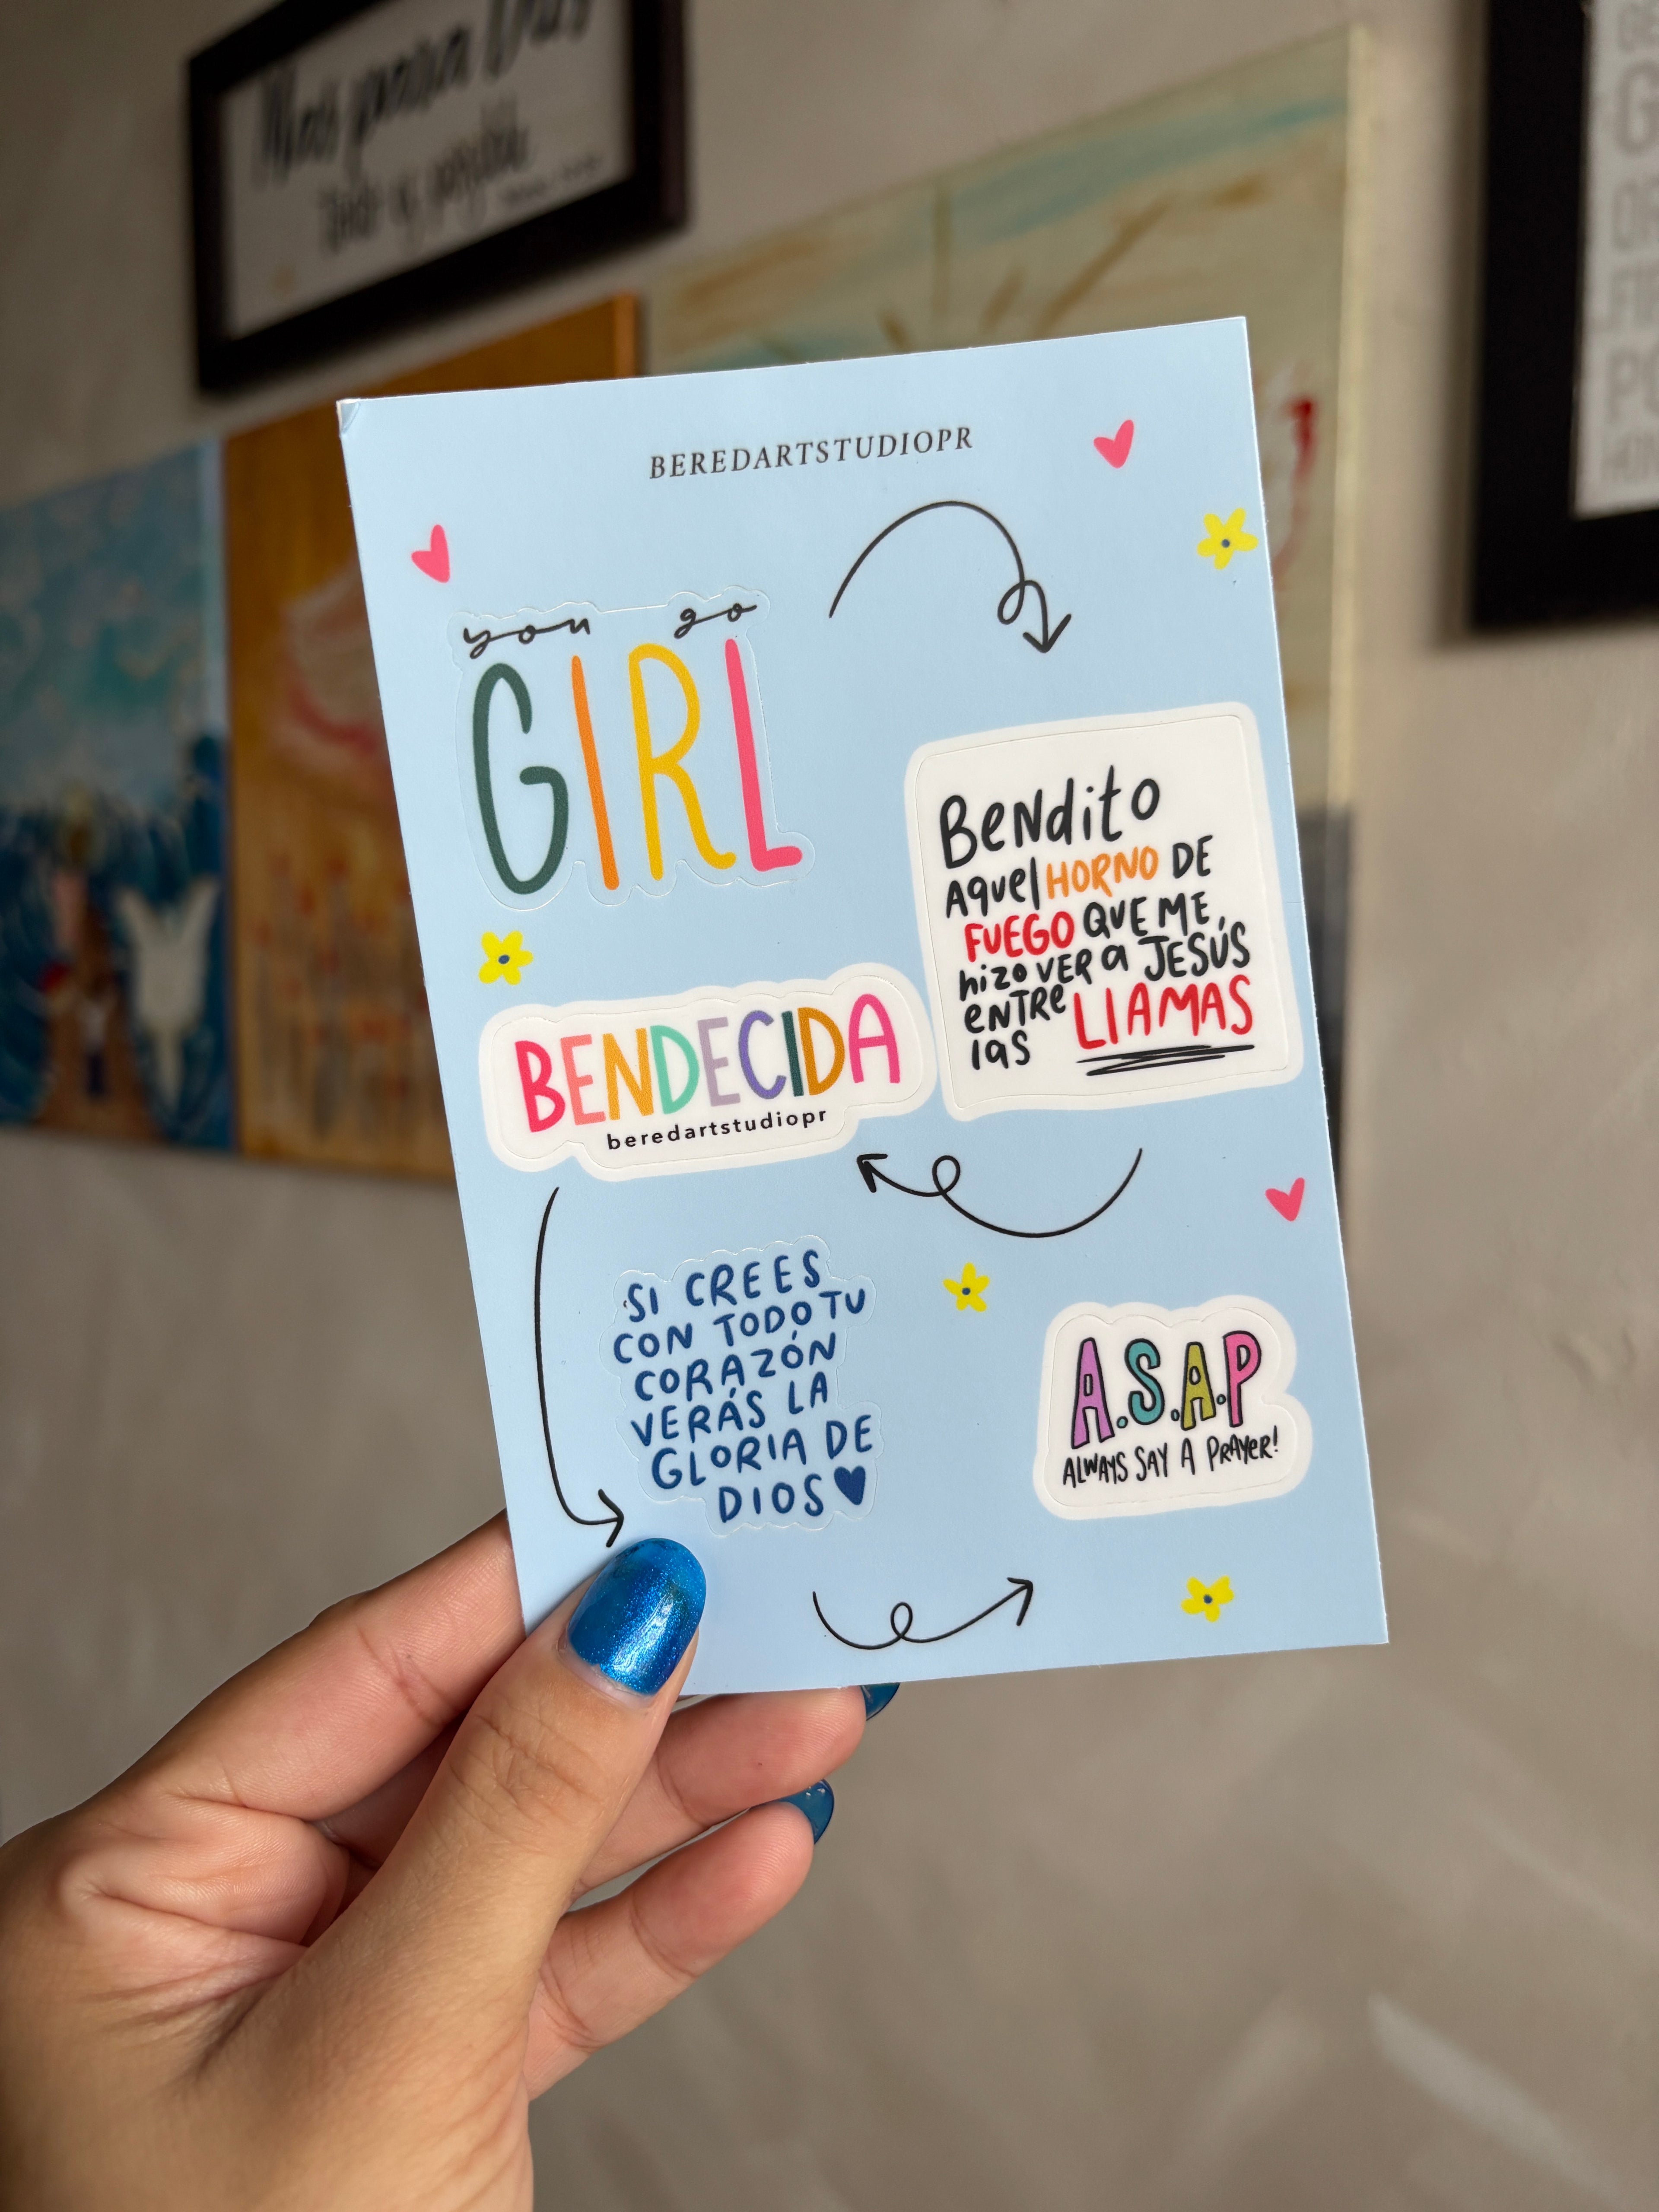 Mas para Dios
todo es posible
BEREDARTSTUDIOPR
you go
GIRL
Bendito
Aquel HORNO DE
FUEGO QUE ME
hizo VER a JESÚS
ENTRE
las LLAMAS
BENDECIDA
beredartstudiopr
SI CREES
CON TODO TU
CORAZÓN
VERÁS LA
GLORIA DE
DIOS
A.S.A.P
ALWAYS SAY A PRAYER!